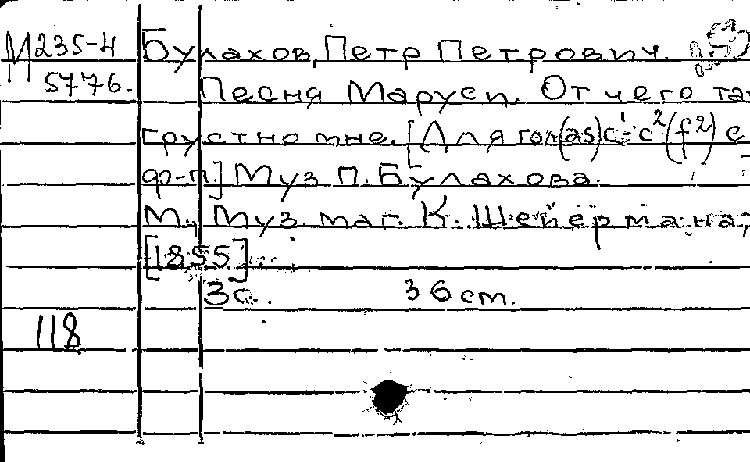 М 235-4 Булахов, Петр Петрович.
5776. Песня Маруси. Отчего так
грустно мне. [Для гол. (as) c¹-c²(f²) с
ф-п.] Муз. П. Булахова.
М., Муз. маг. К. Шейермана,
[1855].
3 с. 36 cm.
118